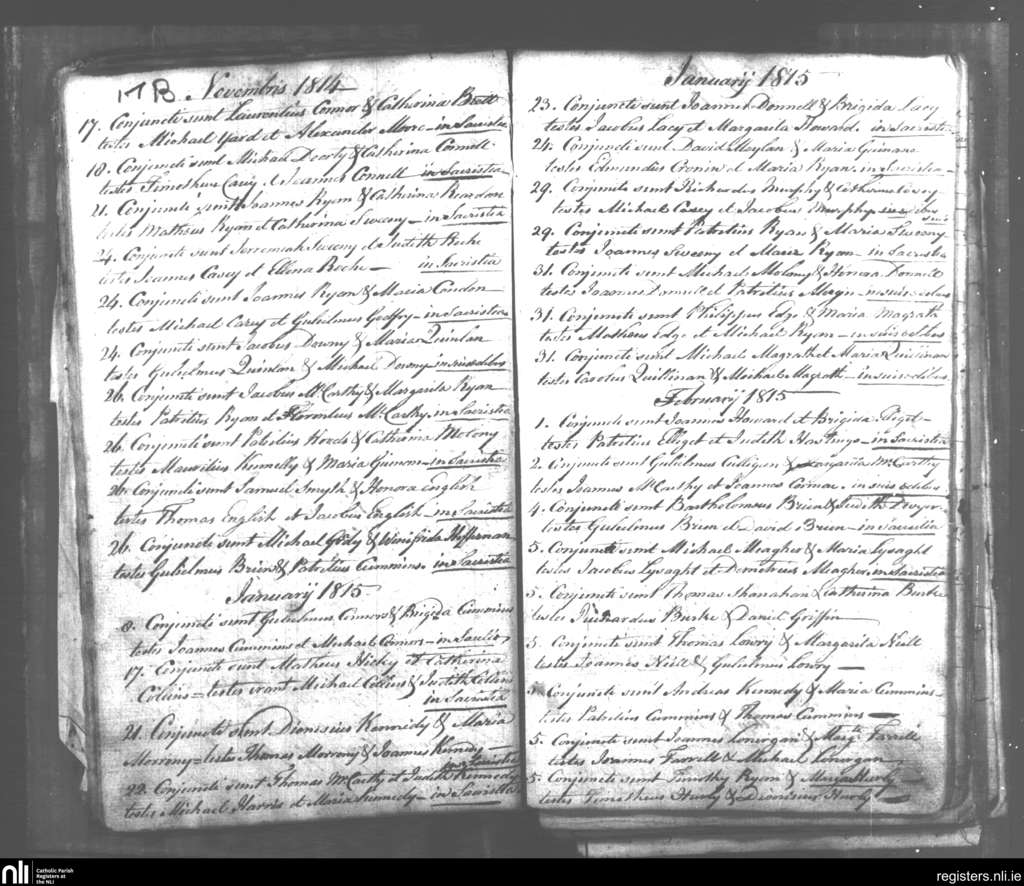 MB Novembris 1814
17. Conjuncti sunt Laurentius Connor & Catherina Brett
testes Michael Yard et Alexander Morre - in Sacristia
18. Conjuncti sunt Michael Dearly & Catherina Connell
testes Timotheus Carey et Joannes Connell in Sacristia
21. Conjuncti sunt Joannes Ryan & Catherina Reardon
testes Matheus Ryan et Catherina Sweeny - in Sacristia
24. Conjuncti sunt Jeremiah Sweeny & Judith Roche
testes Joannes Carey et Ellena Roche - in Sacristia
24. Conjuncti sunt Joannes Ryan & Maria Condon
testes Michael Carey et Gulielmus Godfrey - in Sacristia
24. Conjuncti sunt Jacobus Downy & Maria Quinlan
testes Gulielmus Quinlan & Michael Downy in suis edibus
26. Conjuncti sunt Jacobus McCarthy & Margarita Ryan
testes Patritius Ryan et Florentius McCarthy in Sacristia
26. Conjuncti sunt Patritius & Catherina
testes Mauritius Kennelly & Maria - in Sacristia
26. Conjuncti sunt Samuel Smyth & Honora English
testes Thomas English et Jacobus English - in Sacristia
26. Conjuncti sunt Michael & Winifrida Heffernan
testes Gulielmus Brien & Patritius Cummins. in Sacristia
Januarij 1815
8. Conjuncti sunt Gulielmus Connors & Brigida Cummins
testes Joannes Cummins et Michael Connor - in Sacristia
17. Conjuncti sunt Matheus Hicky et Catherina
Collins = testes erant Michael Collins & Judith Collins
in Sacristia
21. Conjuncti sunt Dionisius Kennedy & Maria
Morrony = testes Thomas Morrony & Joannes Kennedy -
in Sacristia
22. Conjuncti sunt Thomas McCarthy et Judith Kennedy
testes Michael Harris et Maria Kennedy - in Sacristia
Januarij 1815
23. Conjuncti sunt Joannes Donnell & Brigida Lacy
testes Jacobus Lacy et Margarita Howard. in Sacristia
24. Conjuncti sunt David Meylan & Maria Guinane
testes Edmundus Cronin et Maria Ryan. in Sacristia
29. Conjuncti sunt Richardus Murphy & Catherina Casey
testes Michael Casey et Jacobus Murphy
29. Conjuncti sunt Patritius Ryan & Maria Sweeny
testes Joannes Sweeny et Maria Ryan - in Sacristia
31. Conjuncti sunt Michael Molony & Honora Donnell
testes Joannes Donnell et Patritius - in suis edibus
31. Conjuncti sunt Philippus Edge & Maria Magrath
testes Matheus Edge et Michael Ryan - in suis edibus
31. Conjuncti sunt Michael Magrath et Maria Quillinan
testes Carolus Quillinan & Michael Magrath - in suis edibus
February 1815
1. Conjuncti sunt Joannes Howard et Brigida
testes Patritius Elligot et Judith Hastings - in Sacristia
2. Conjuncti sunt Gulielmus Culligan & Margarita McCarthy
testes Joannes McCarthy et Joannes Connor. in suis edibus
4. Conjuncti sunt Bartholomeus Brien & Judith Dwyer
testes Gulielmus Brien et David Brien - in Sacristia
5. Conjuncti sunt Michael Meagher & Maria Lysaght
testes Jacobus Lysaght et Demetrius Meagher in Sacristia
5. Conjuncti sunt Thomas Shanahan & Catherina Burke
testes Richardus Burke & Daniel Griffin
5. Conjuncti sunt Thomas Lowry & Margarita Neill
testes Joannes Neill & Gulielmus Lowry -
5. Conjuncti sunt Andreas Kennedy & Maria Cummins -
testes Patritius Cummins & Thomas Cummins -
5. Conjuncti sunt Joannes Lonergan & Margta Farrell
testes Joannes Farrell & Michael Lonergan
5. Conjuncti sunt Timothy Ryan & Maria Hurly -
testes Timotheus Hurly & Dionisius Hurly -
nli Catholic Parish
Registers at
the NLI
registers.nli.ie